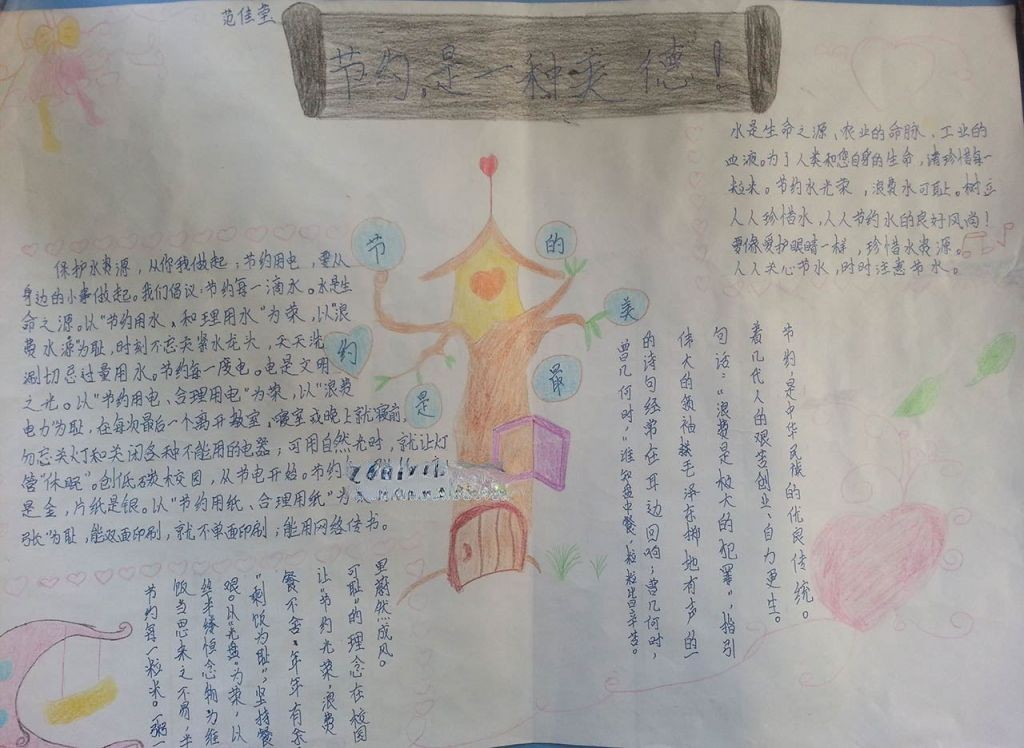 范佳莹
节约是一种美德！
水是生命之源、农业的命脉、工业的
血液。为了人类和您自身的生命，请珍惜每一
粒米。节约水光荣，浪费水可耻。树立
人人珍惜水，人人节约水的良好风尚！
要像爱护眼睛一样，珍惜水资源。
人人关心节水，时时注意节水。
节
约
是
最
美
的
保护水资源，从你我做起；节约用电，要从
身边的小事做起。我们倡议：节约每一滴水。水是生
命之源。以“节约用水、和理用水”为荣，以“浪
费水源”为耻，时刻不忘关紧水龙头，天天洗
测切忌过量用水。节约每一度电。电是文明
之光。以“节约用电、合理用电”为荣，以“浪费
电力”为耻，在每次最后一个离开教室、寝室或晚上就寝前，
勿忘关灯和关闭各种不能用的电器；可用自然光时，就让灯
管“休眠”。创低碳校园，从节电开始。节约
是金，片纸是银。以“节约用纸、合理用纸”为
张”为耻，能双面印刷，就不单面印刷；能用网络传书。
节约，是中华民族的优良传统。
着几代人的艰苦创业、自力更生。
句话：“浪费是极大的犯罪”，指引
伟大的领袖毛泽东掷地有声的一
的诗句经常在耳边回响；曾几何时，
曾几何时，“谁知盘中餐，粒粒皆辛苦。
里蔚然成风。
可耻”的理念在校园
让“节约光荣，浪费
餐不舍，年年有余
“剩饭为耻”，坚持餐
艰。以“光盘”为荣，以
丝半缕恒念物为维
饭当思来之不易，半
节约每一粒米。一粥一